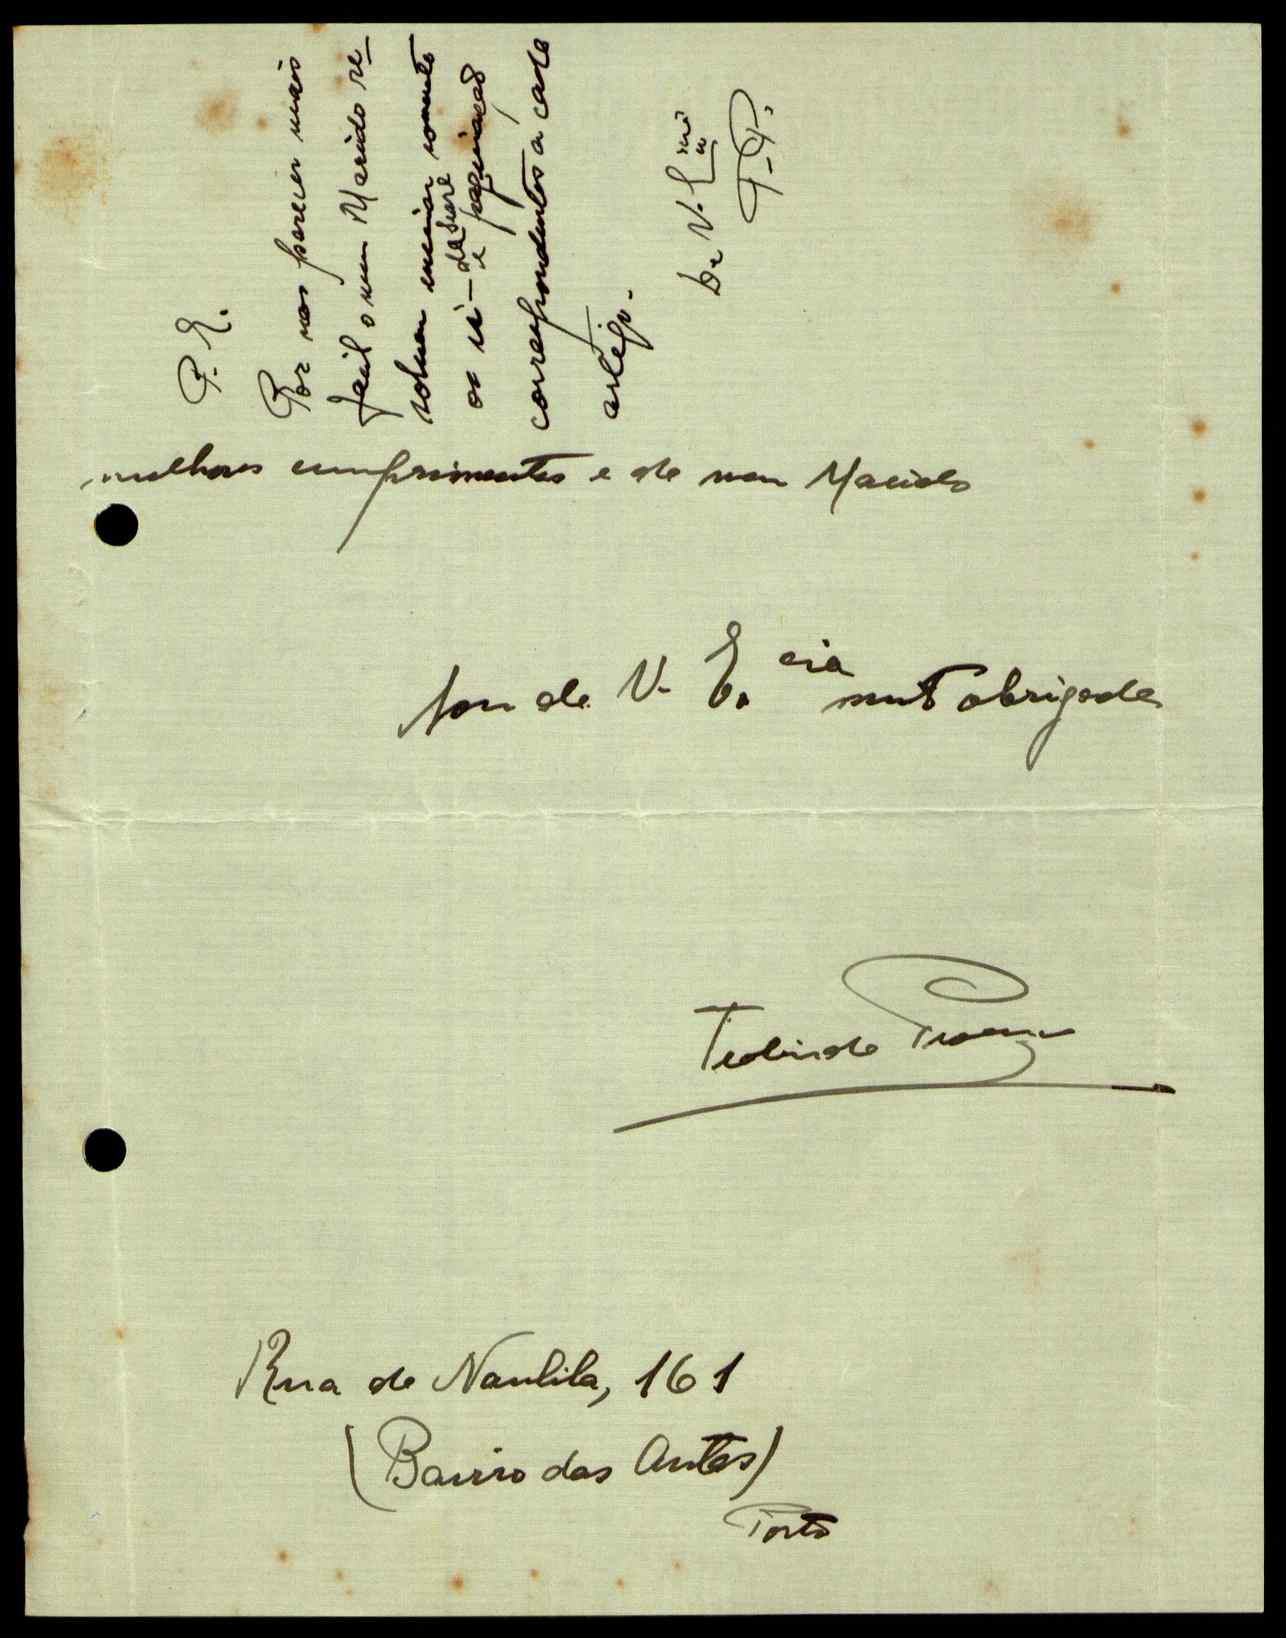 melhores cumprimentos e de meu Marido
sou de V. E.cia muitº obrigada
Teolinda
Rua de Naulila, 161
(Bairro das Antas)
Porto
P. E.
Por nos parecer mais
facil o meu Marido re-
solveu enviar somente
os
e paginação
correspondentes a cada
artigo.
De V. E.
T. P.